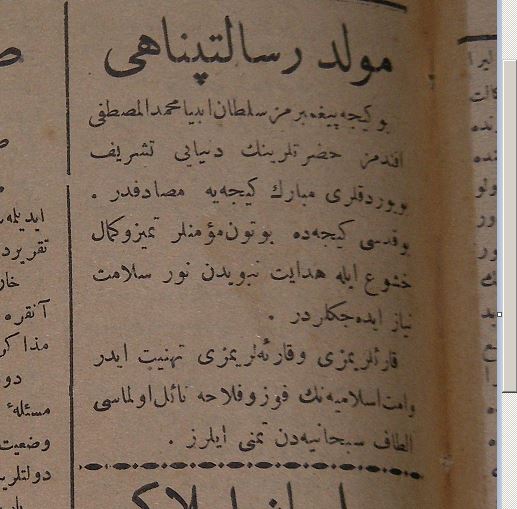 مولد رسالتپناهی
بو کیجه پیغمبرمز سلطان انبیا محمد المصطفی
افندمز حضرتلرینك دنیایی تشریف
بویوردقلری مبارك كیجه‌یه مصادفدر .
بو قدسی كیجه‌ده بوتون مؤمنلر تمیز و كمال
خشوع ایله هدایت نبویدن نور سلامت
نیاز ایده‌جكلردر .
قارئلریمزی وقارئه‌لریمزی تهنیت ایدر
وامت اسلامیه‌نك فوز و فلاحه نائل اولماسی
الطاف سبحانیه‌دن تمنی ایلرز .
ایدیلمه
تقریرد
خار
آنقره
مذا كر
دو
مسئله‌ٔ
وضعیت
دولتلری